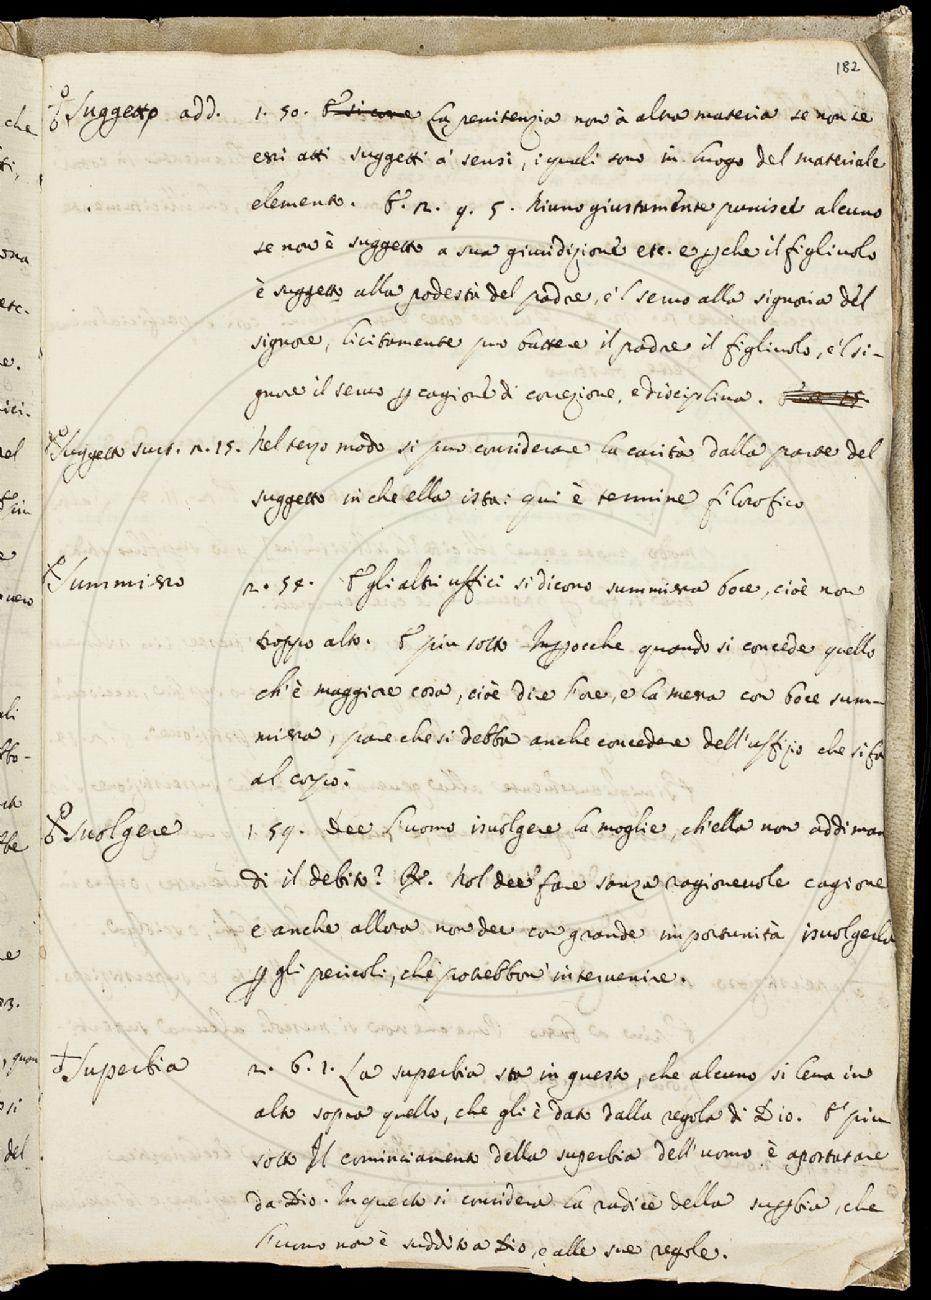 182
Suggetto add. 1. 50. E si come La penitenzia non à altra materia se non se
essi atti suggetti a' sensi, i quali sono in luogo del materiale
elemento. E 2. 9. 5. Niuno giustamente punisce alcuno
se non è suggetto a sua giuridizione etc. e ꝑche il figliuolo
è suggetto alla podestà del padre, e 'l servo alla signoria del
signore, licitamente puo battere il padre il figliuolo, e 'l si-
gnore il servo ꝑ cagione di correzione, e disciplina.
Suggetto sust. 2. 15. Nel terzo modo si puo considerare la carità dalla parte del
suggetto in che ella ista: qui è termine filosofico
Summisso 2. 54. E gli altri uffici si dicono summissa boce, cioè non
troppo alto. E piu sotto Imꝑocche quando si concede quello
ch'è maggiore cosa, cioè dire l'ore, e la messa con boce sum-
missa, pare che si debba anche concedere dell'uffizio che si fa
al corpo.
Svolgere 1. 59. Dee l'uomo isvolgere la moglie, ch'ella non addiman
di il debito? R. Nol dee fare sanza ragionevole cagione
e anche allora non dee con grande importunità isvolgerla
ꝑ gli pericoli, che potrebbon intervenire.
Superbia 2. 6. 1. La superbia sta in questo, che alcuno si leva in
alto sopra quello, che gli è dato dalla regola di Dio. E piu
sotto Il cominciamento della superbia dell'uomo è apostatare
da Dio. In questo si considera la radice della suꝑbia, che
l'uomo non è suddito a Dio, e alle sue regole.